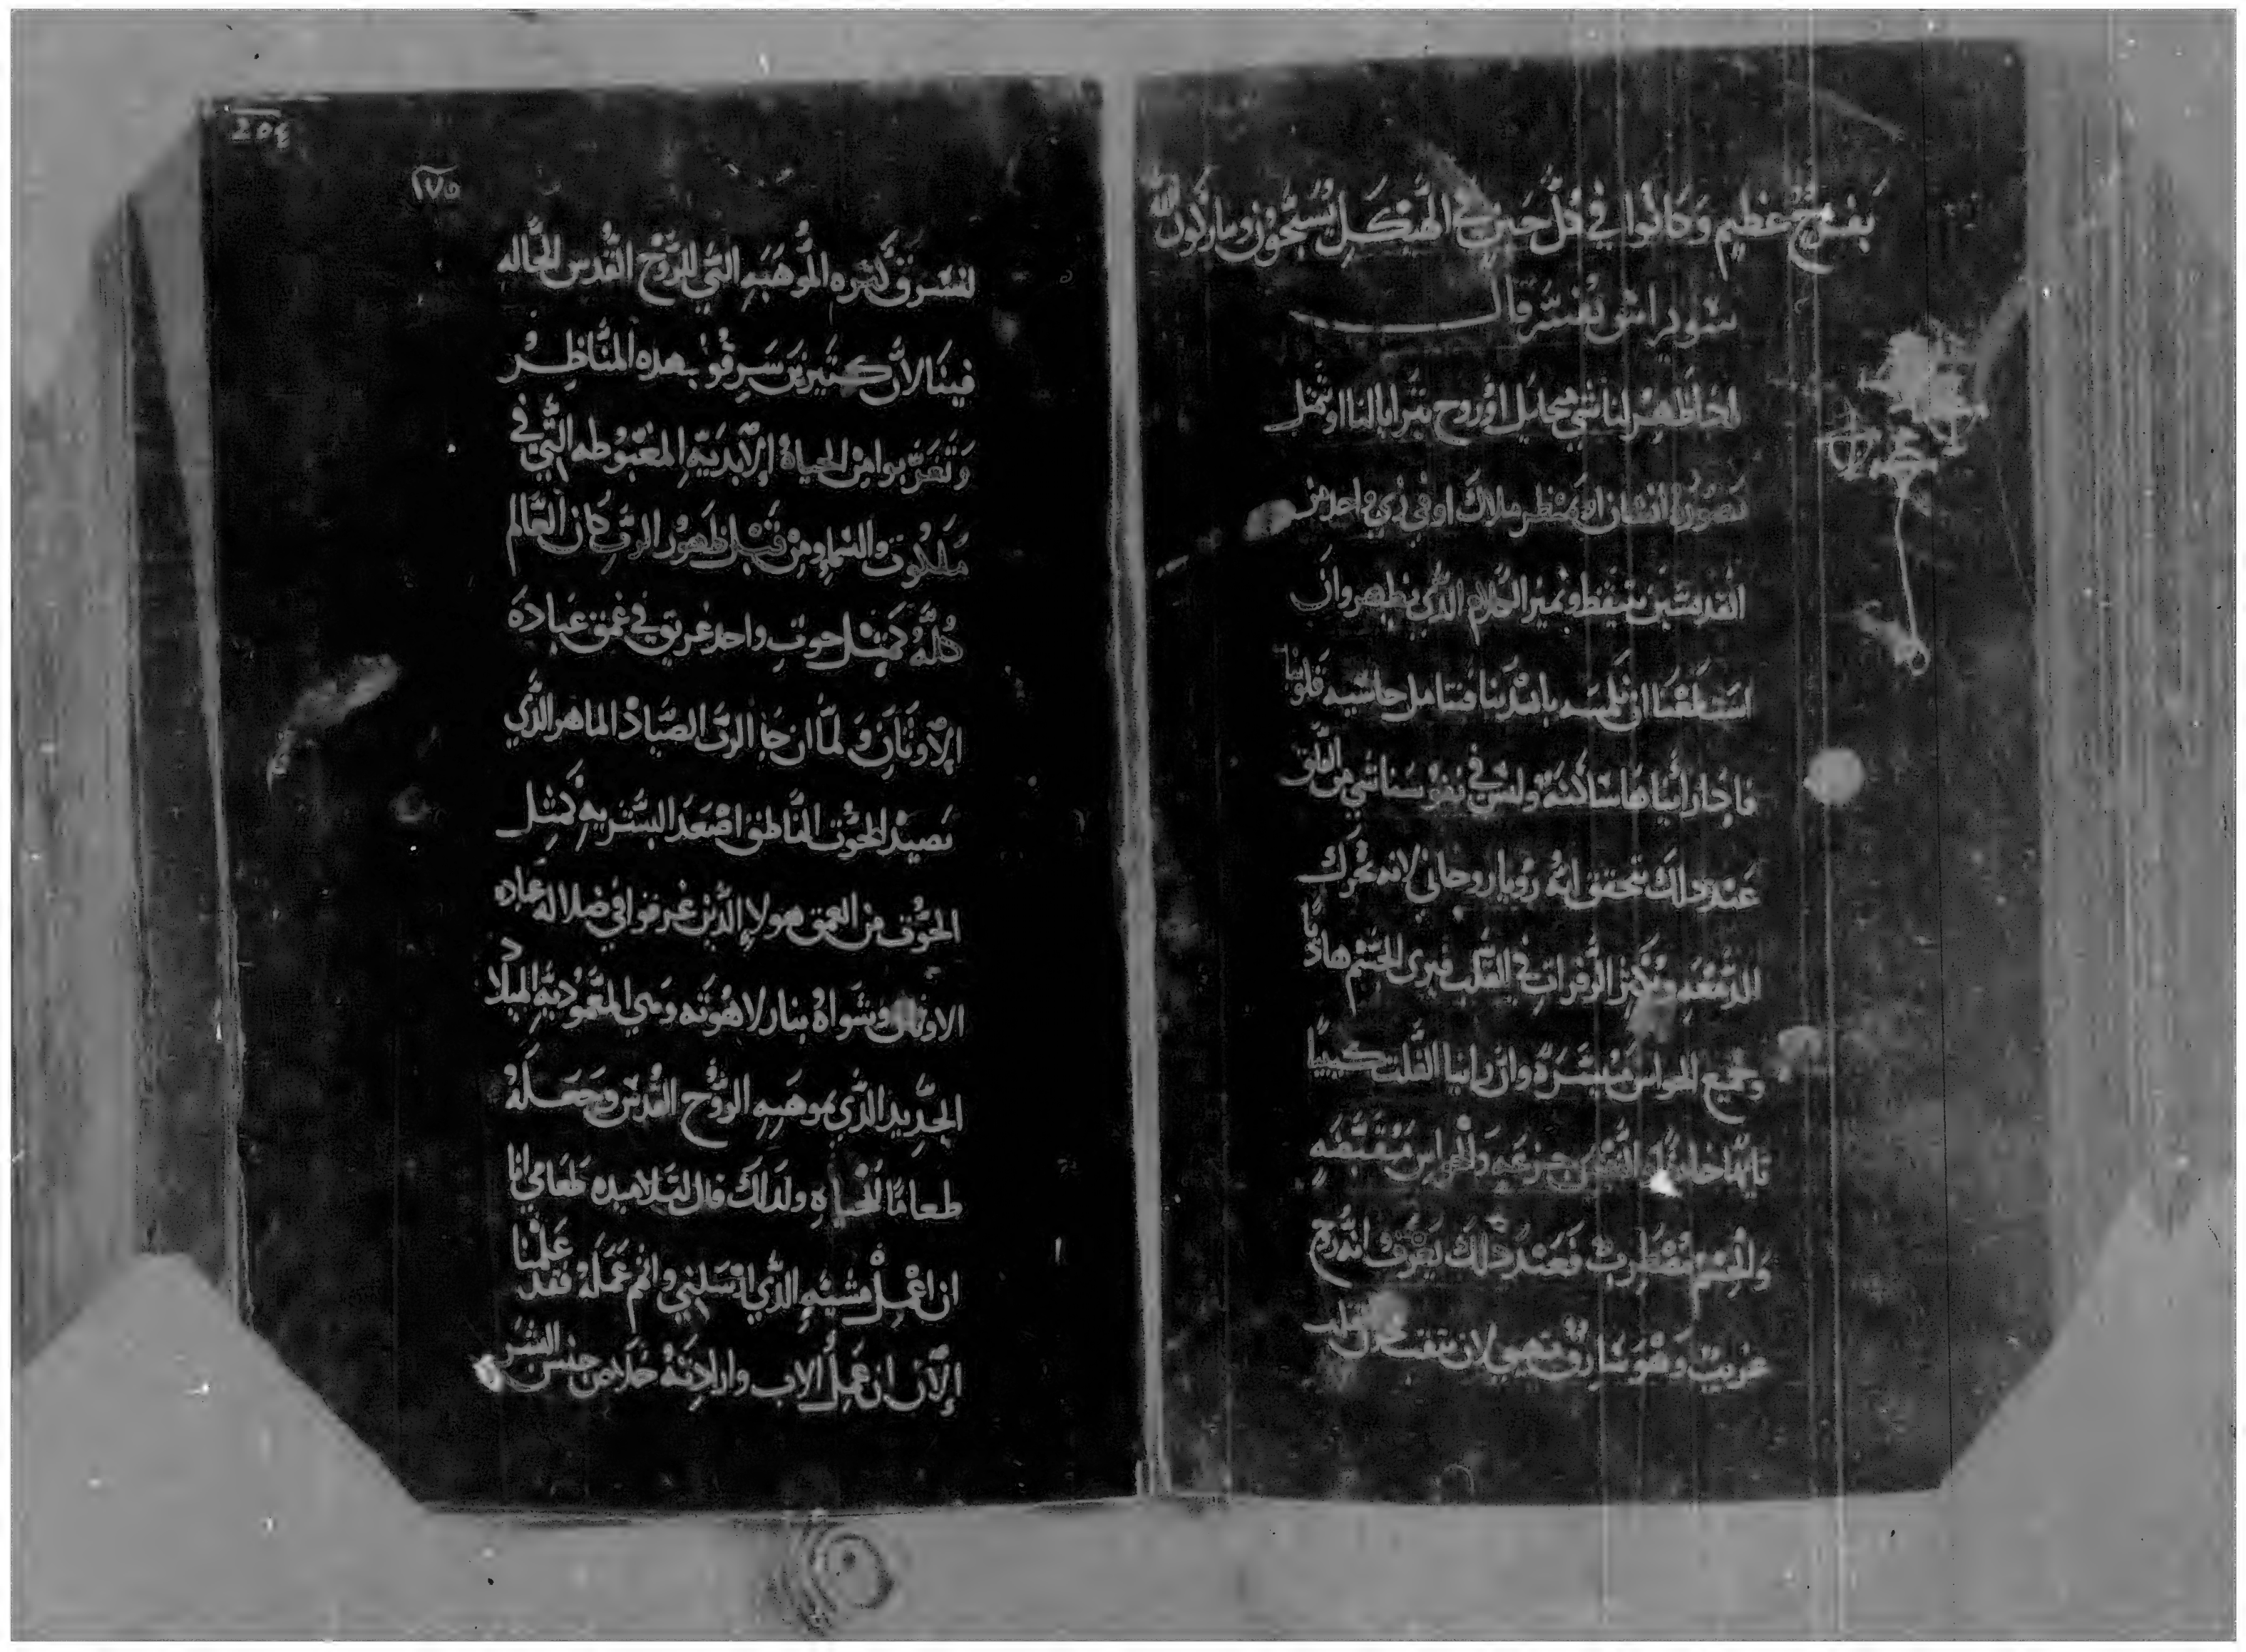 بفرح عظيم وكانوا في كل حين في الهيكل يسبحون ويباركون الله
سويراس يفسر قال
اذا ظهر لنا شي جليل او روح يترايا لنا او تمثل
بصورة انسان او بمنظر ملاك او في زي واحد من
القديسين نتيقظ ونميز الكلام الذي يظهر وان
استطعنا ان نلمسه بايدينا نتامل حاسيه قلوبنا
فاذا رايناها ساكنة وليس في نفوسنا شي من القلق
عند ذلك نتحقق انه رويا روحاني لانه تحرك
الدمعه وتكثر الزفرات في القلب فيرى الجسم هاديا
وجميع الحواس متيسرة وان راينا القلب كييبا
والنفس جزعه والحواس منقبضه
والجسم مضطرب فعند ذلك يعرف انه روح
غريب وهو سارق تهيي لان
لنسرق كنزه الموهبه التي للروح القدس الحاله
فينا لان كتيرين سرقوا بهذه المناظر
وتغربوا من الحياة الابدية المغبوطه التي في
ملكوت السما ومن قبل ظهور الرب كان العالم
كله كمثل حوت واحد غريق في عمق عبادة
الاوتان ولما ان جا الرب الصياد الماهر الذي
يصيد الحوت الناطق اصعد البشرية كمثل
الحوت من العمق هولاء الذين غرقوا في ضلالة عباده
الاوتان وشواه بنار لاهوته وهي المعمودية الميلاد
الجديد الذي بموهبه الروح القدس وجعله
طعاما للحياه ولذلك قال لتلاميذه طعامي انا
ان اعمل مشية الذي ارسلني واتم عمله فقد علمنا
الان ان عمل الاب وارادته خلاص جنس البشر
١٧٥